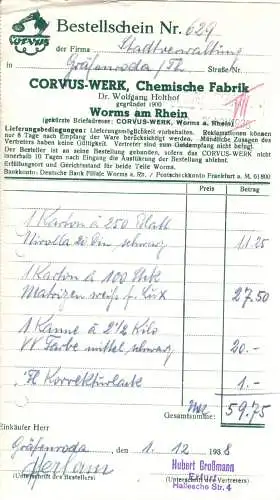 CORVUS
Bestellschein Nr. 629
der Firma Stadtverwaltung
in Gräfenroda /Th. Straße/Nr.
CORVUS-WERK, Chemische Fabrik
Dr. Wolfgang Holthof
gegründet 1900
Worms am Rhein
(gekürzte Briefadresse: CORVUS-WERK, Worms a. Rhein)
Lieferungsbedingungen: Lieferungsmöglichkeit vorbehalten. Reklamationen können
nur 8 Tage nach Empfang der Ware berücksichtigt werden. Mündliche Zusagen des
Vertreters haben keine Gültigkeit. Vertreter sind zum Geldempfang nicht befugt.
Der Besteller ist an seine Bestellung gebunden, sofern das CORVUS-WERK nicht
innerhalb 10 Tagen nach Eingang die Ausführung der Bestellung ablehnt.
Erfüllungsort und Gerichtsstand für beide Teile Worms.
Bankkonto: Deutsche Bank Filiale Worms a. Rh. / Postscheckkonto Frankfurt a. M. 61800
Preis Betrag
1 Karton à 250 Blatt
20 schwarz 11.25
1 Karton à 100 Stck
Matrizen weiß 27.50
1 Kanne à 2½ Kilo
VV Farbe mittel schwarz 20.-
Korrekturlack 1.-
Gesamtsumme: 59.75
Einkäufer Herr
Gräfenroda, den 1. 12. 1938
(Unterschrift des Bestellers) (Unterschrift des Vertreters)
Hubert Großmann
Erfurt
Hallesche Str. 4